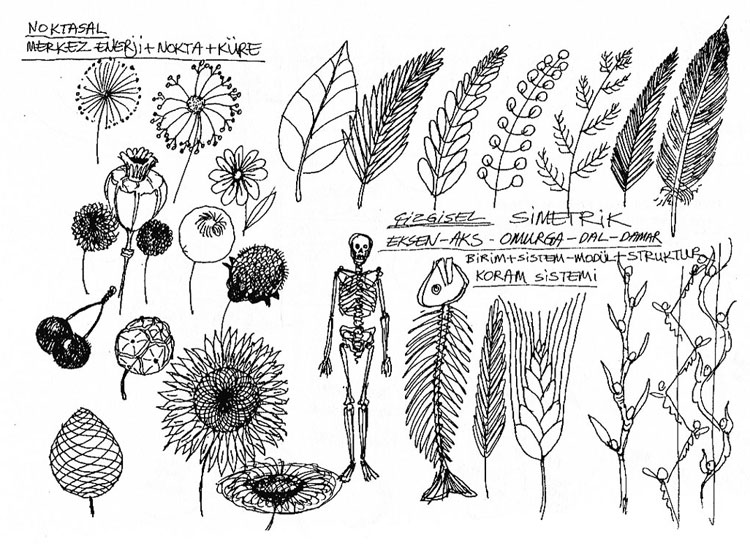 NOKTASAL
MERKEZ ENERJİ+NOKTA+KÜRE
ÇİZGİSEL SİMETRİK
EKSEN-AKS-OMURGA-DAL-DAMAR
BİRİM+SİSTEM-MODÜL+STRUKTUR
KORAM SİSTEMİ